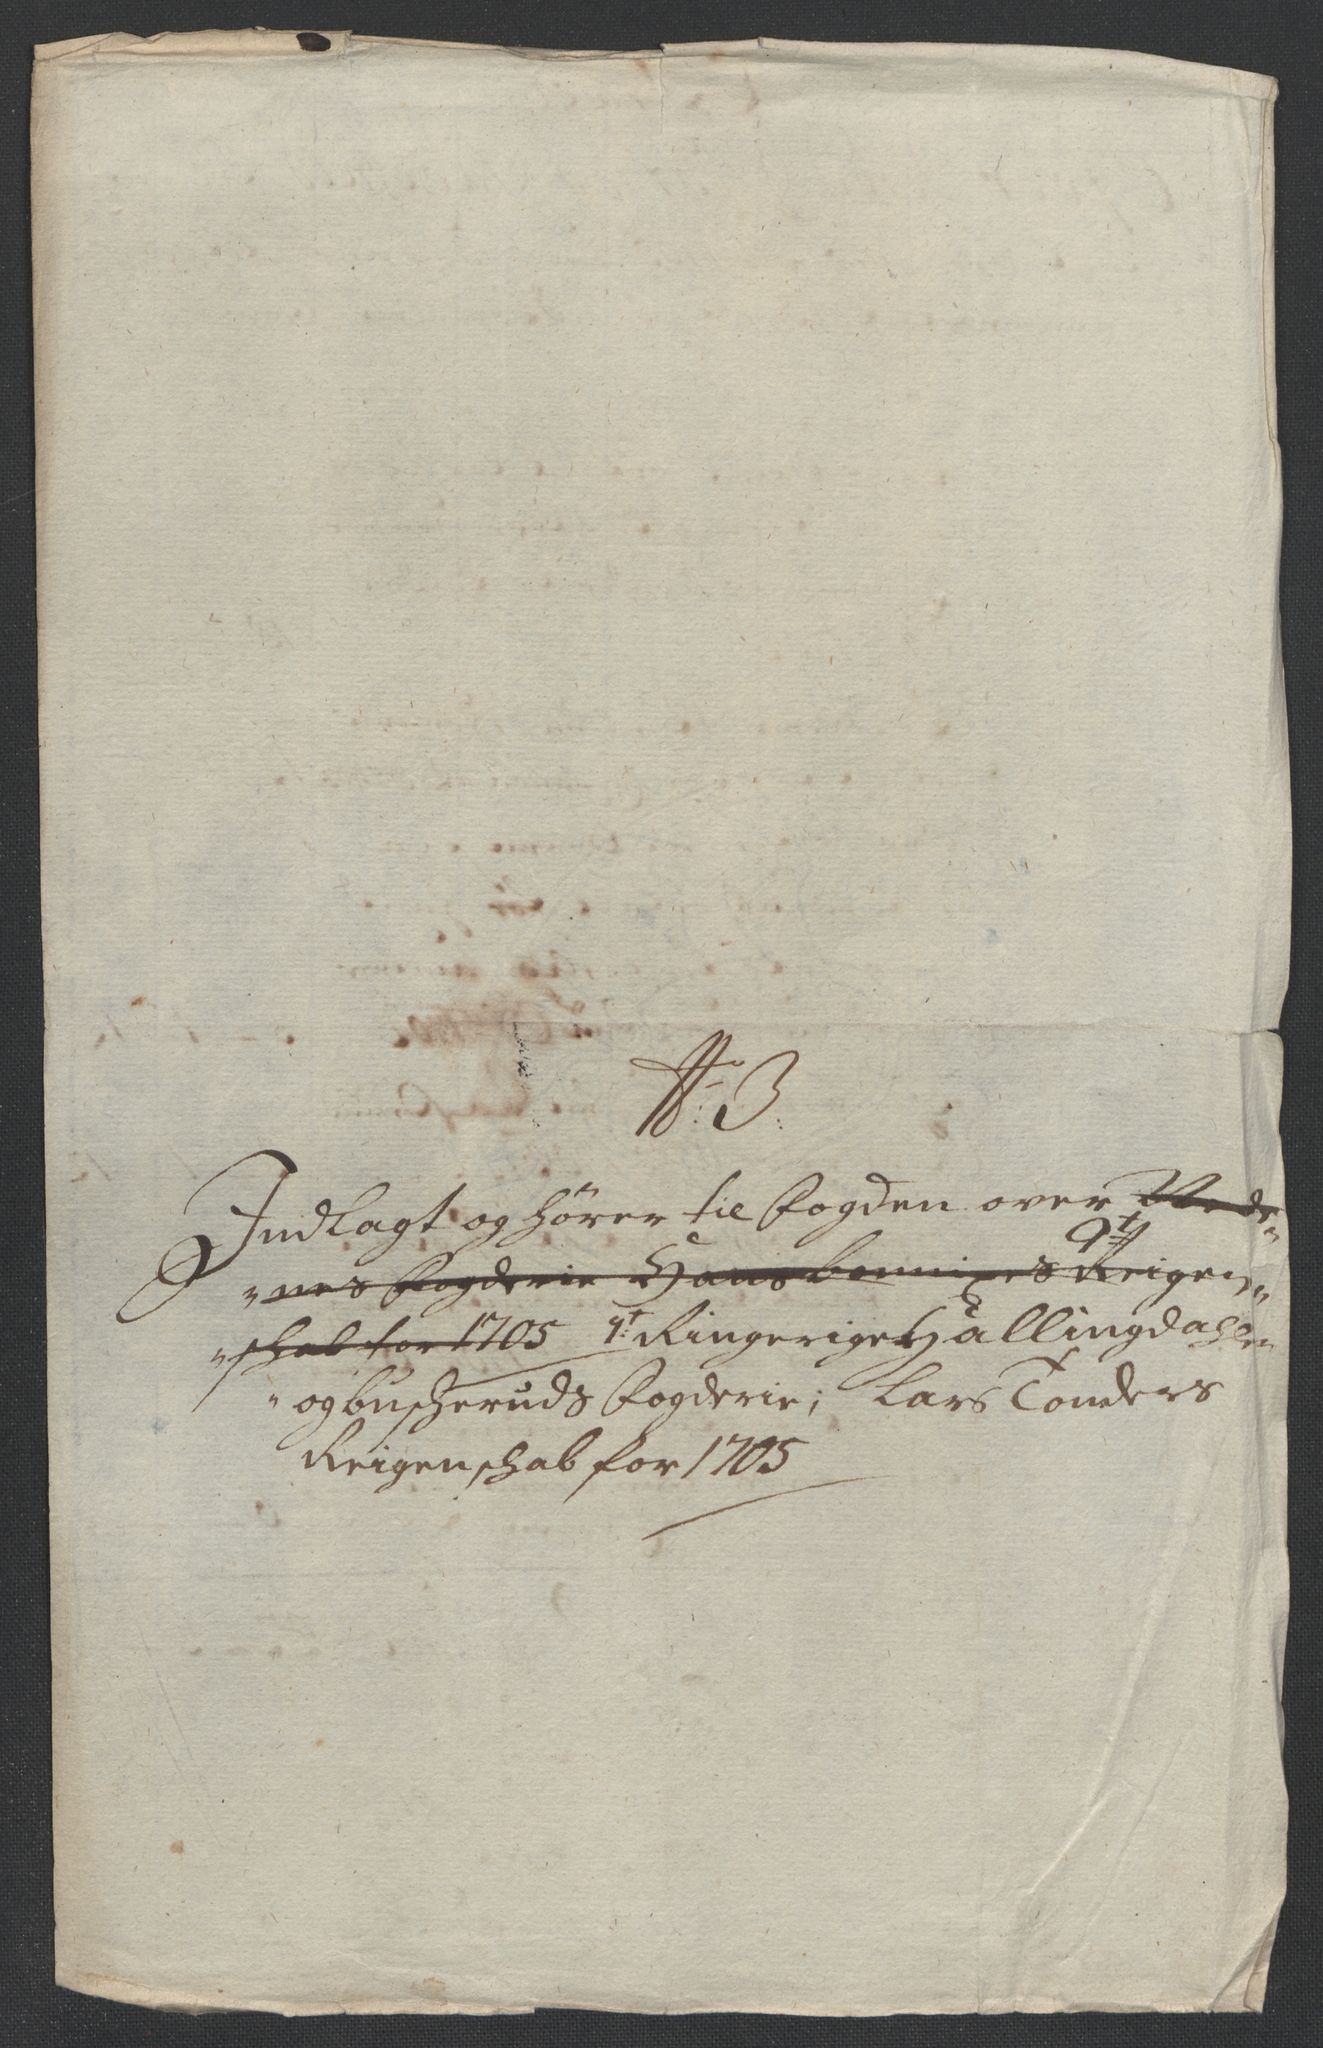 No: 3.
Indlagt og hører til Fogden over Nede„
„nes Fogderie Hans bennixes Reigen„
„schab for 1705 Ringerige Hallingdahl„
„og buscheruds Fogderie; Lars Tonders
Reigenschab for 1705